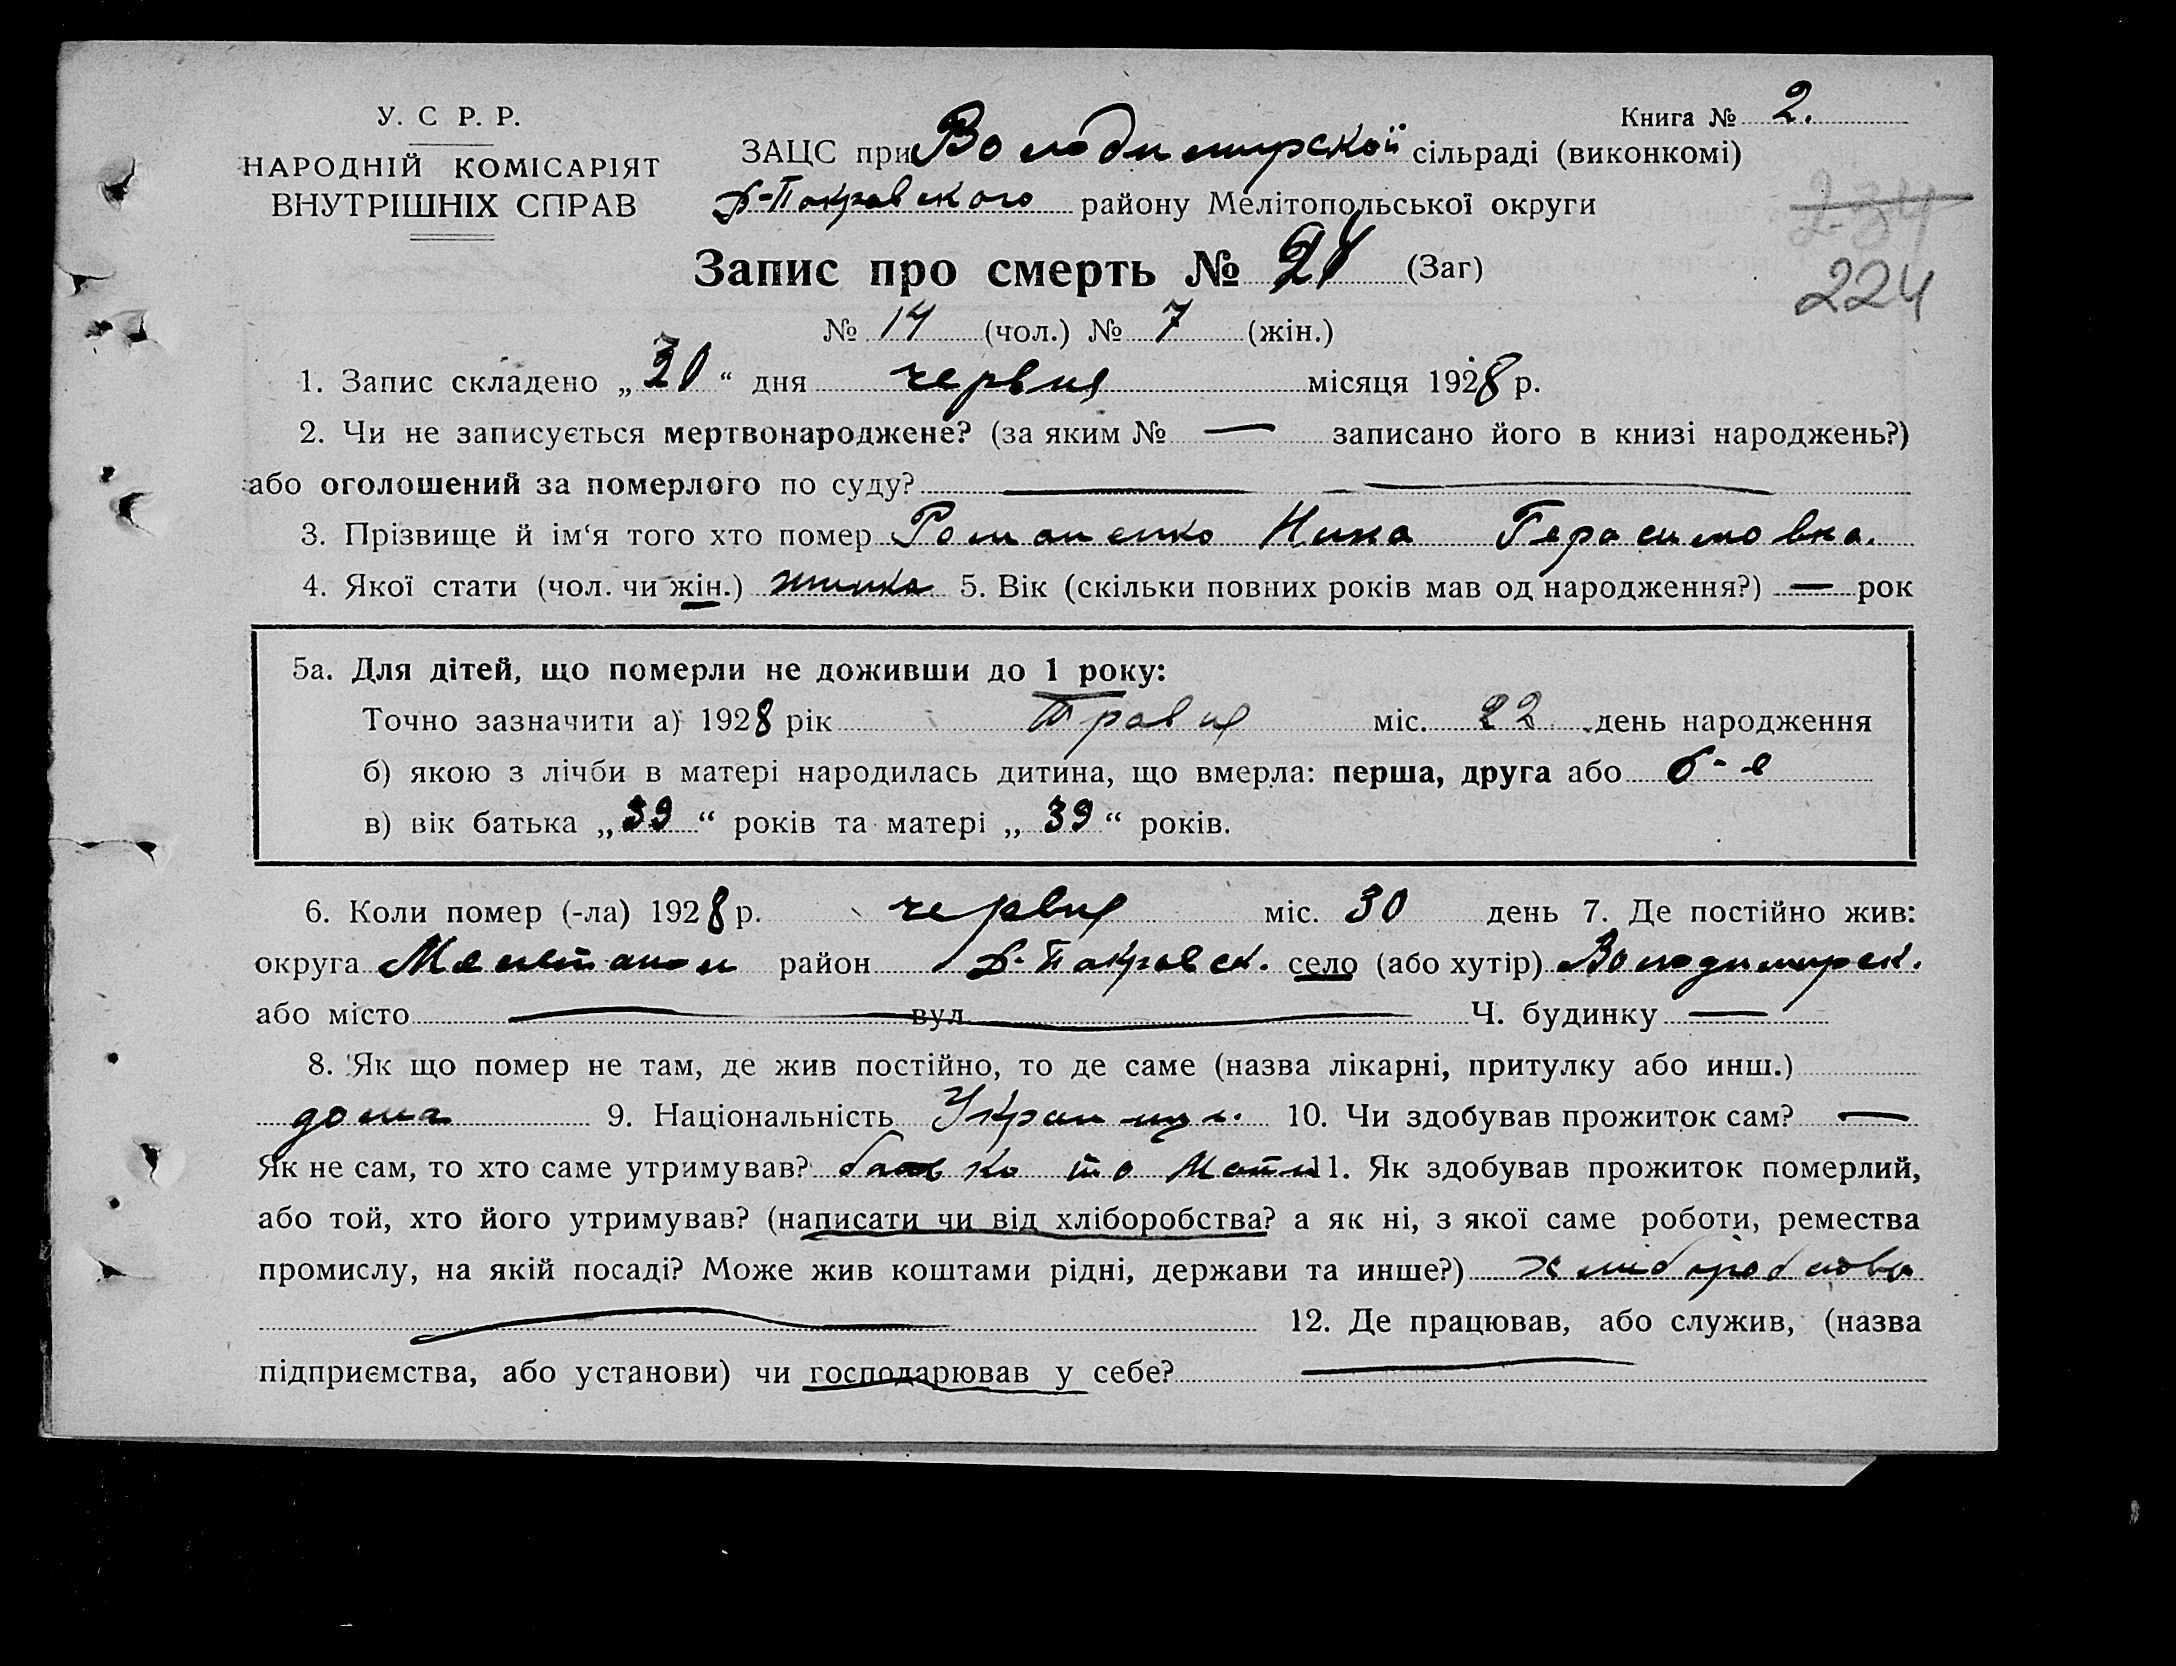 У. С Р. Р.
НАРОДНІЙ КОМІСАРІЯТ
ВНУТРІШНІХ СПРАВ
Книга № 2.
ЗАЦС при Володимирской сільраді (виконкомі)
Д-Покровского району Мелітопольської округи
234
224
Запис про смерть № 21 (Заг)
№ 14 (чол.) № 7 (жін.)
1. Запис складено „30“ дня червня місяця 1928 р.
2. Чи не записується мертвонароджене? (за яким № — записано його в книзі народжень?)
або оголошений за померлого по суду?
3. Прізвище й ім‘я того хто помер Романенко Нина Герасимовна.
4. Якої стати (чол. чи жін.) жинка 5. Вік (скільки повних років мав од народження?) — рок
5а. Для дітей, що померли не доживши до 1 року:
Точно зазначити а) 1928 рік Травня міс. 22 день народження
б) якою з лічби в матері народилась дитина, що вмерла: перша, друга або 6-а
в) вік батька „39“ років та матері „39“ років.
6. Коли помер (-ла) 1928 р. червня міс. 30 день 7. Де постійно жив:
округа район Д-Покровск. село (або хутір) Володимирск.
або місто — вул — Ч. будинку —
8. Як що помер не там, де жив постійно, то де саме (назва лікарні, притулку або инш.)
дома 9. Національність 10. Чи здобував прожиток сам? —
Як не сам, то хто саме утримував? батько та мати 11. Як здобував прожиток померлий,
або той, хто його утримував? (написати чи від хліборобства? а як ні, з якої саме роботи, ремества
промислу, на якій посаді? Може жив коштами рідні, держави та инше?)
12. Де працював, або служив, (назва
підприємства, або установи) чи господарював у себе? —